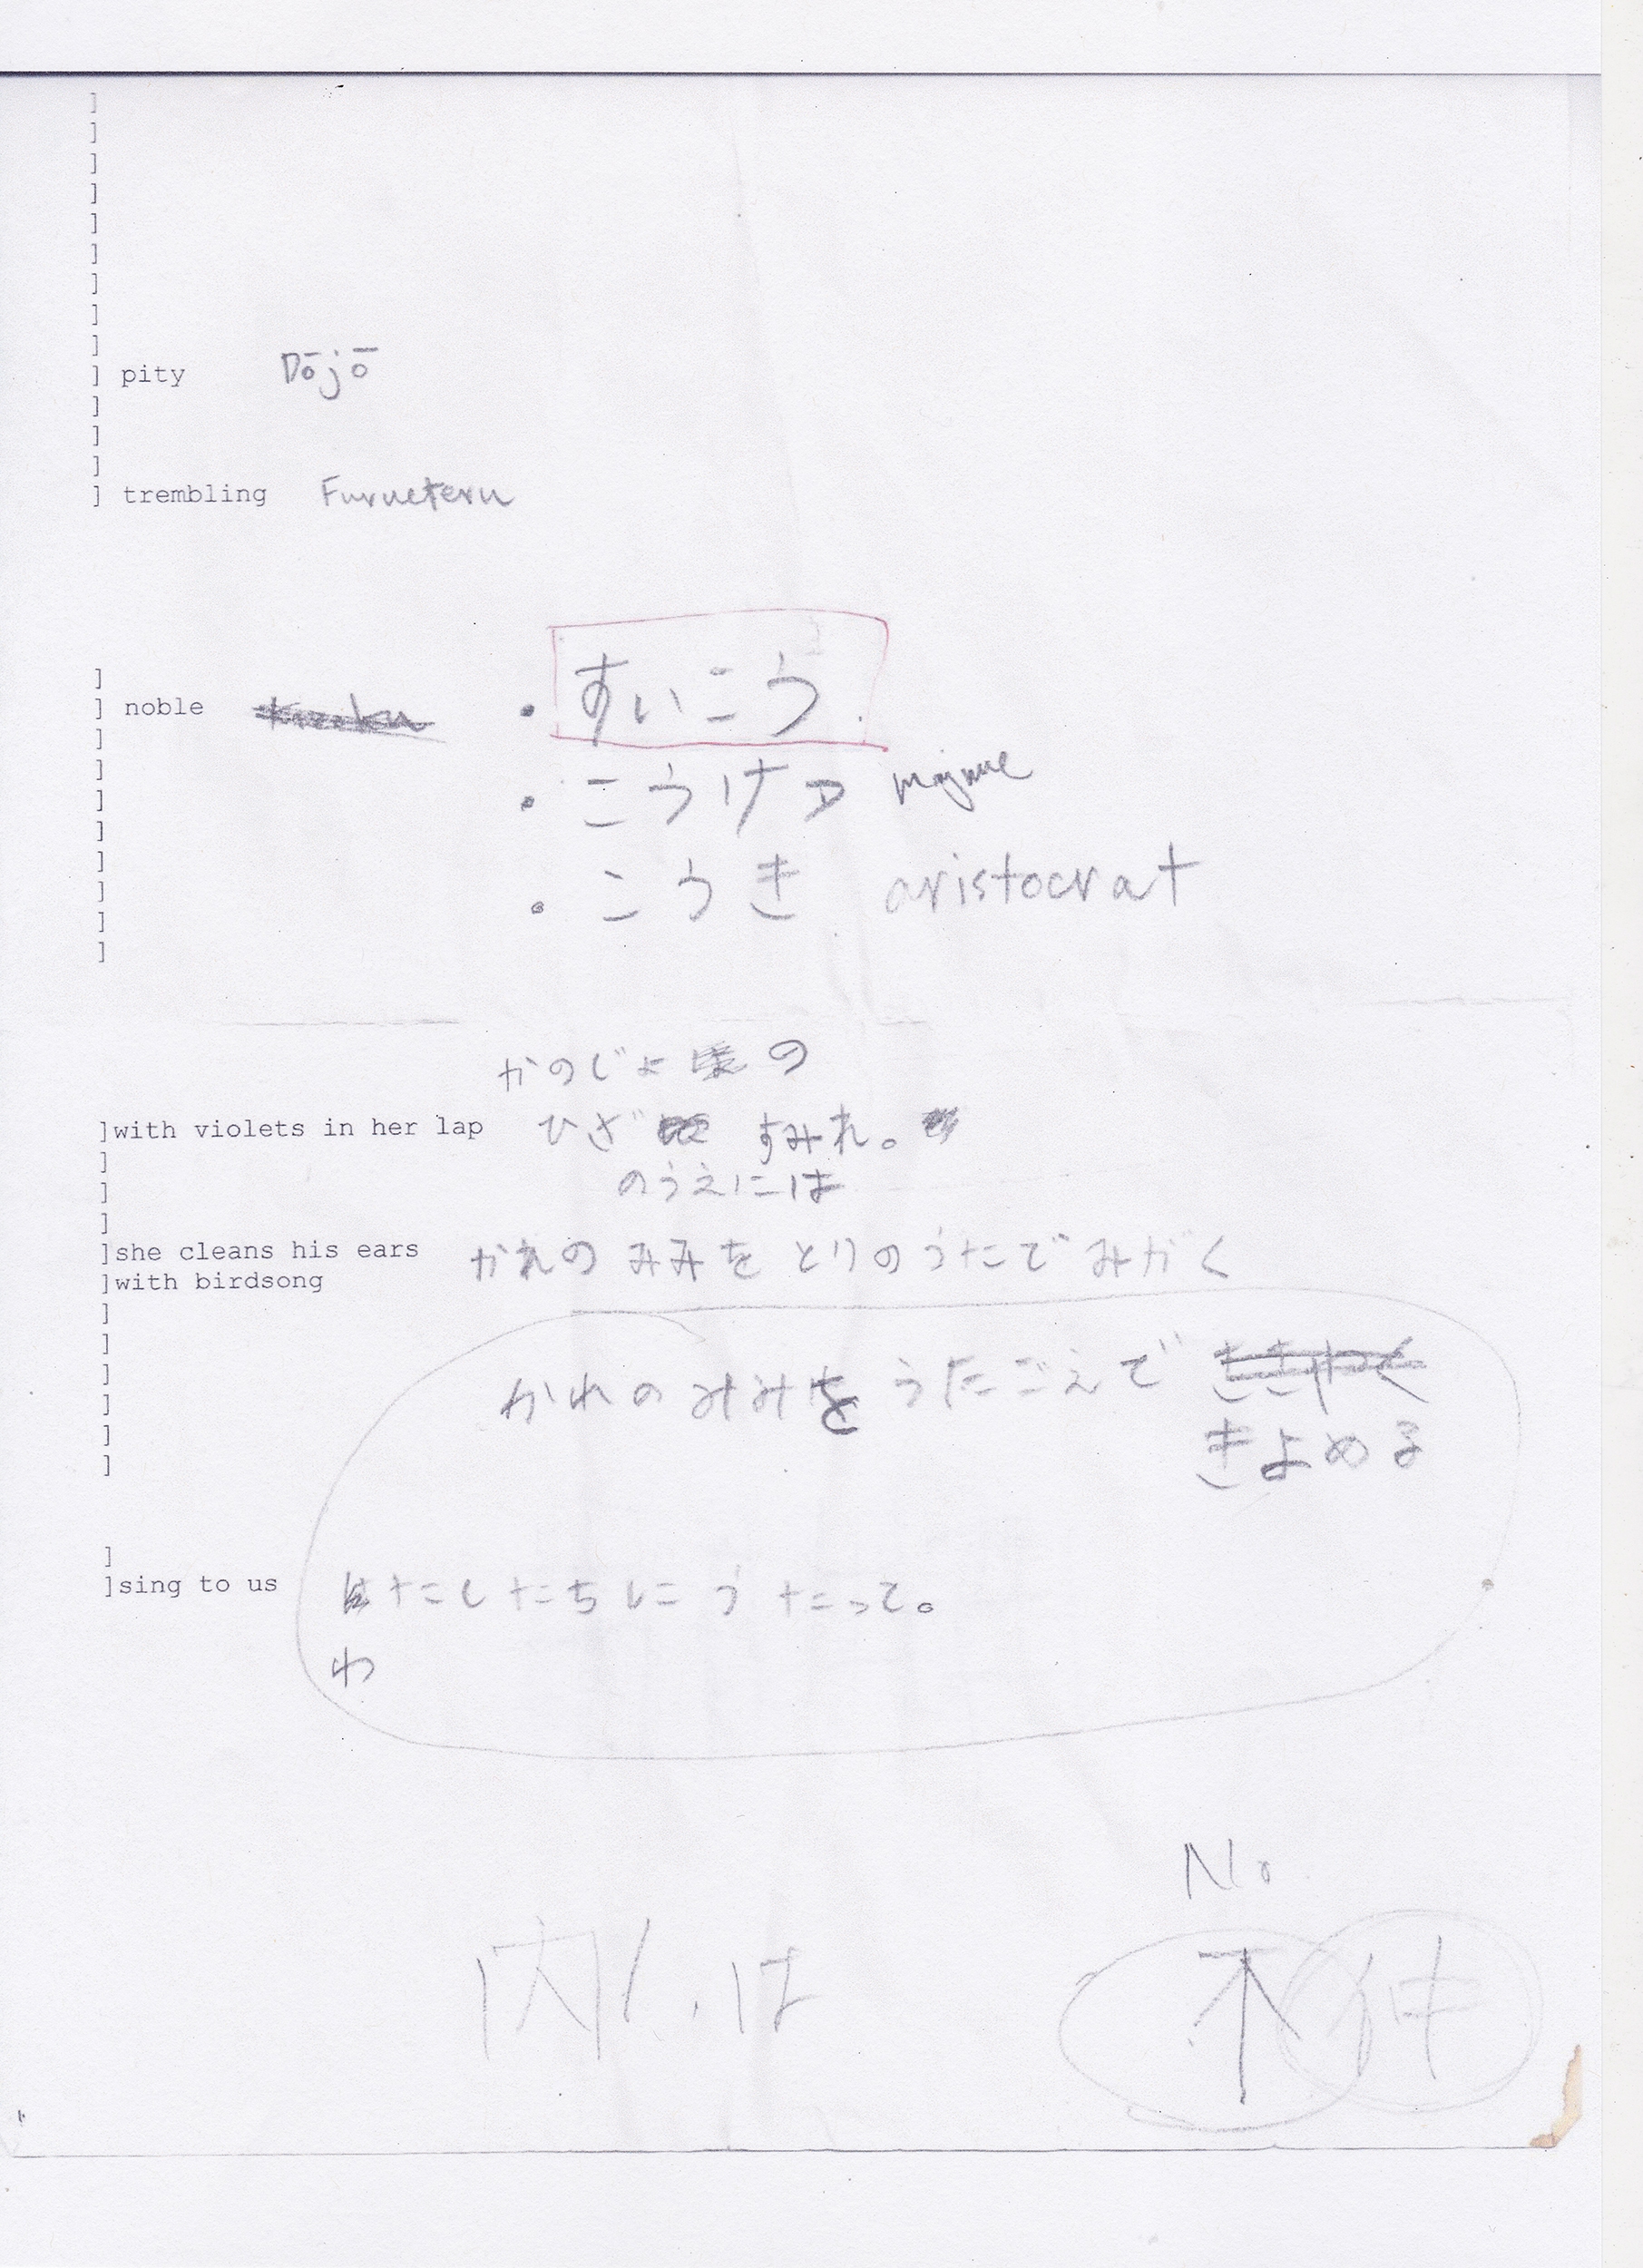 ]
]
]
]
]
]
]
]
]
] pity Dōjō
]
]
]
] trembling Furueteru
]
] noble ・すいこう
]
]
] ・こうけつ
]
]
] ・こうき aristocrat
]
]
かのじょの
]with violets in her lap ひざ すみれ。
]
] のうえには
]
]she cleans his ears かれの みみを とりのうたで みがく
]with birdsong
]
]
]
] かれのみみを うたごえで
]
] きよめる
]
]sing to us たしたちに うたって。
わ
No
内 は
不 仲